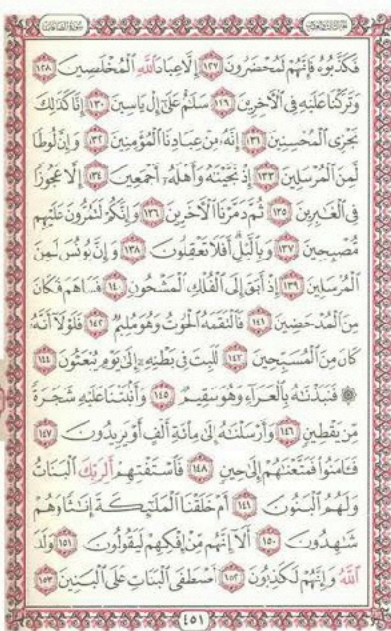 الجزء الثالث والعشرون سورة الصافات
فَكَذَّبُوهُ فَإِنَّهُمْ لَمُحْضَرُونَ ١٢٧ إِلَّا عِبَادَ ٱللَّهِ ٱلْمُخْلَصِينَ ١٢٨
وَتَرَكْنَا عَلَيْهِ فِى ٱلْأَخِرِينَ ١٢٩ سَلَٰمٌ عَلَىٰٓ إِلْ يَاسِينَ ١٣٠ إِنَّا كَذَٰلِكَ
نَجْزِى ٱلْمُحْسِنِينَ ١٣١ إِنَّهُۥ مِنْ عِبَادِنَا ٱلْمُؤْمِنِينَ ١٣٢ وَإِنَّ لُوطًا
لَّمِنَ ٱلْمُرْسَلِينَ ١٣٣ إِذْ نَجَّيْنَٰهُ وَأَهْلَهُۥٓ أَجْمَعِينَ ١٣٤ إِلَّا عَجُوزًا
فِى ٱلْغَٰبِرِينَ ١٣٥ ثُمَّ دَمَّرْنَا ٱلْأَخَرِينَ ١٣٦ وَإِنَّكُمْ لَتَمُرُّونَ عَلَيْهِم
مُّصْبِحِينَ ١٣٧ وَبِٱلَّيْلِ أَفَلَا تَعْقِلُونَ ١٣٨ وَإِنَّ يُونُسَ لَمِنَ
ٱلْمُرْسَلِينَ ١٣٩ إِذْ أَبَقَ إِلَى ٱلْفُلْكِ ٱلْمَشْحُونِ ١٤٠ فَسَاهَمَ فَكَانَ
مِنَ ٱلْمُدْحَضِينَ ١٤١ فَٱلْتَقَمَهُ ٱلْحُوتُ وَهُوَ مُلِيمٌ ١٤٢ فَلَوْلَآ أَنَّهُۥ
كَانَ مِنَ ٱلْمُسَبِّحِينَ ١٤٣ لَلَبِثَ فِى بَطْنِهِۦٓ إِلَىٰ يَوْمِ يُبْعَثُونَ ١٤٤
۞ فَنَبَذْنَٰهُ بِٱلْعَرَآءِ وَهُوَ سَقِيمٌ ١٤٥ وَأَنۢبَتْنَا عَلَيْهِ شَجَرَةً
مِّن يَقْطِينٍ ١٤٦ وَأَرْسَلْنَٰهُ إِلَىٰ مِا۟ئَةِ أَلْفٍ أَوْ يَزِيدُونَ ١٤٧
فَـَٔامَنُوا۟ فَمَتَّعْنَٰهُمْ إِلَىٰ حِينٍ ١٤٨ فَٱسْتَفْتِهِمْ أَلِرَبِّكَ ٱلْبَنَاتُ
وَلَهُمُ ٱلْبَنُونَ ١٤٩ أَمْ خَلَقْنَا ٱلْمَلَٰٓئِكَةَ إِنَٰثًا وَهُمْ
شَٰهِدُونَ ١٥٠ أَلَآ إِنَّهُم مِّنْ إِفْكِهِمْ لَيَقُولُونَ ١٥١ وَلَدَ
ٱللَّهُ وَإِنَّهُمْ لَكَٰذِبُونَ ١٥٢ أَصْطَفَى ٱلْبَنَاتِ عَلَى ٱلْبَنِينَ ١٥٣
٤٥١